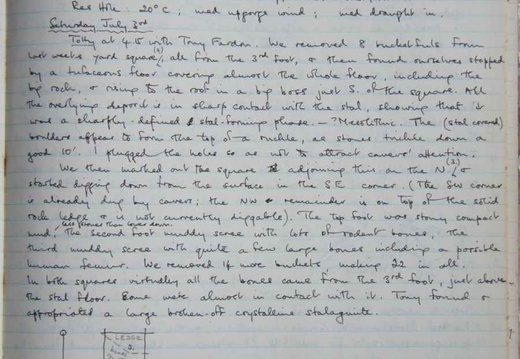 Res Hole. 20°C; med upgorge wind; med draught in.
Saturday July 3rd
Totty at 4.15 with Tony Fardon. We removed 8 bucketfuls from
last weeks yard square, all from the 3rd foot, & then found ourselves stopped
by a tufaceous floor covering almost the whole floor, including the
big rock, & rising to the roof in a big boss just S. of the square. All
the overlying deposit is in sharp contact with the stal, showing that it
was a sharply-defined stal-forming phase. - ?Mesolithic. The (stal covered)
boulders appear to form the top of a ruckle, as stones trickle down a
good 10'. I plugged the holes so as not to attract cavers' attention.
We then marked out the square (2) adjoining this on the N. &
started digging down from the surface in the SE corner. (The SW corner
is already dug by cavers; the NW remainder is on top of the solid
rock ledge & is not currently diggable). The top foot was stony compact
mud, less stones than lower down. the second foot muddy scree with lots of rodent bones, the
third muddy scree with quite a few large bones including a possible
human femur. We removed 14 more buckets making 22 in all.
In both squares virtually all the bones came from the 3rd foot, just above
the stal floor. Some were almost in contact with it. Tony found &
appropriated a large broken-off crystalline stalagmite.
LEDGE
2.